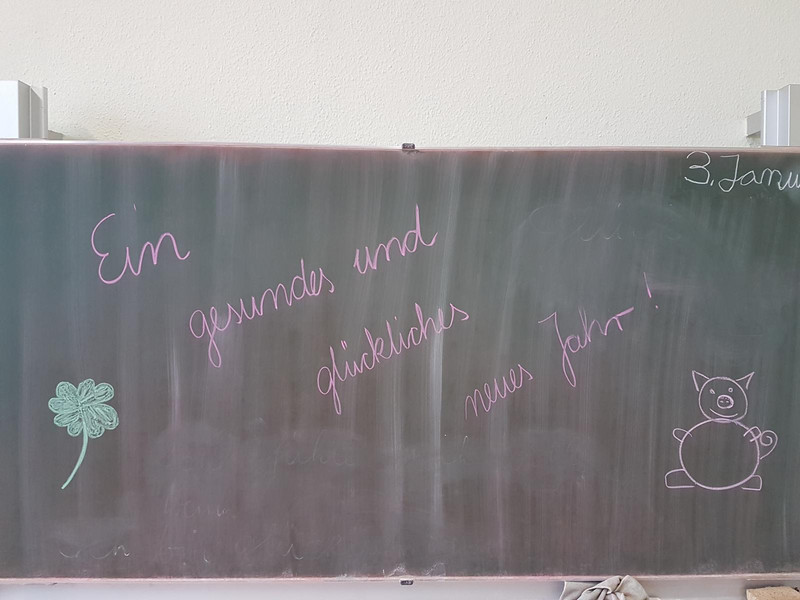 3. Janu
Ein
gesundes und
glückliches
neues Jahr!